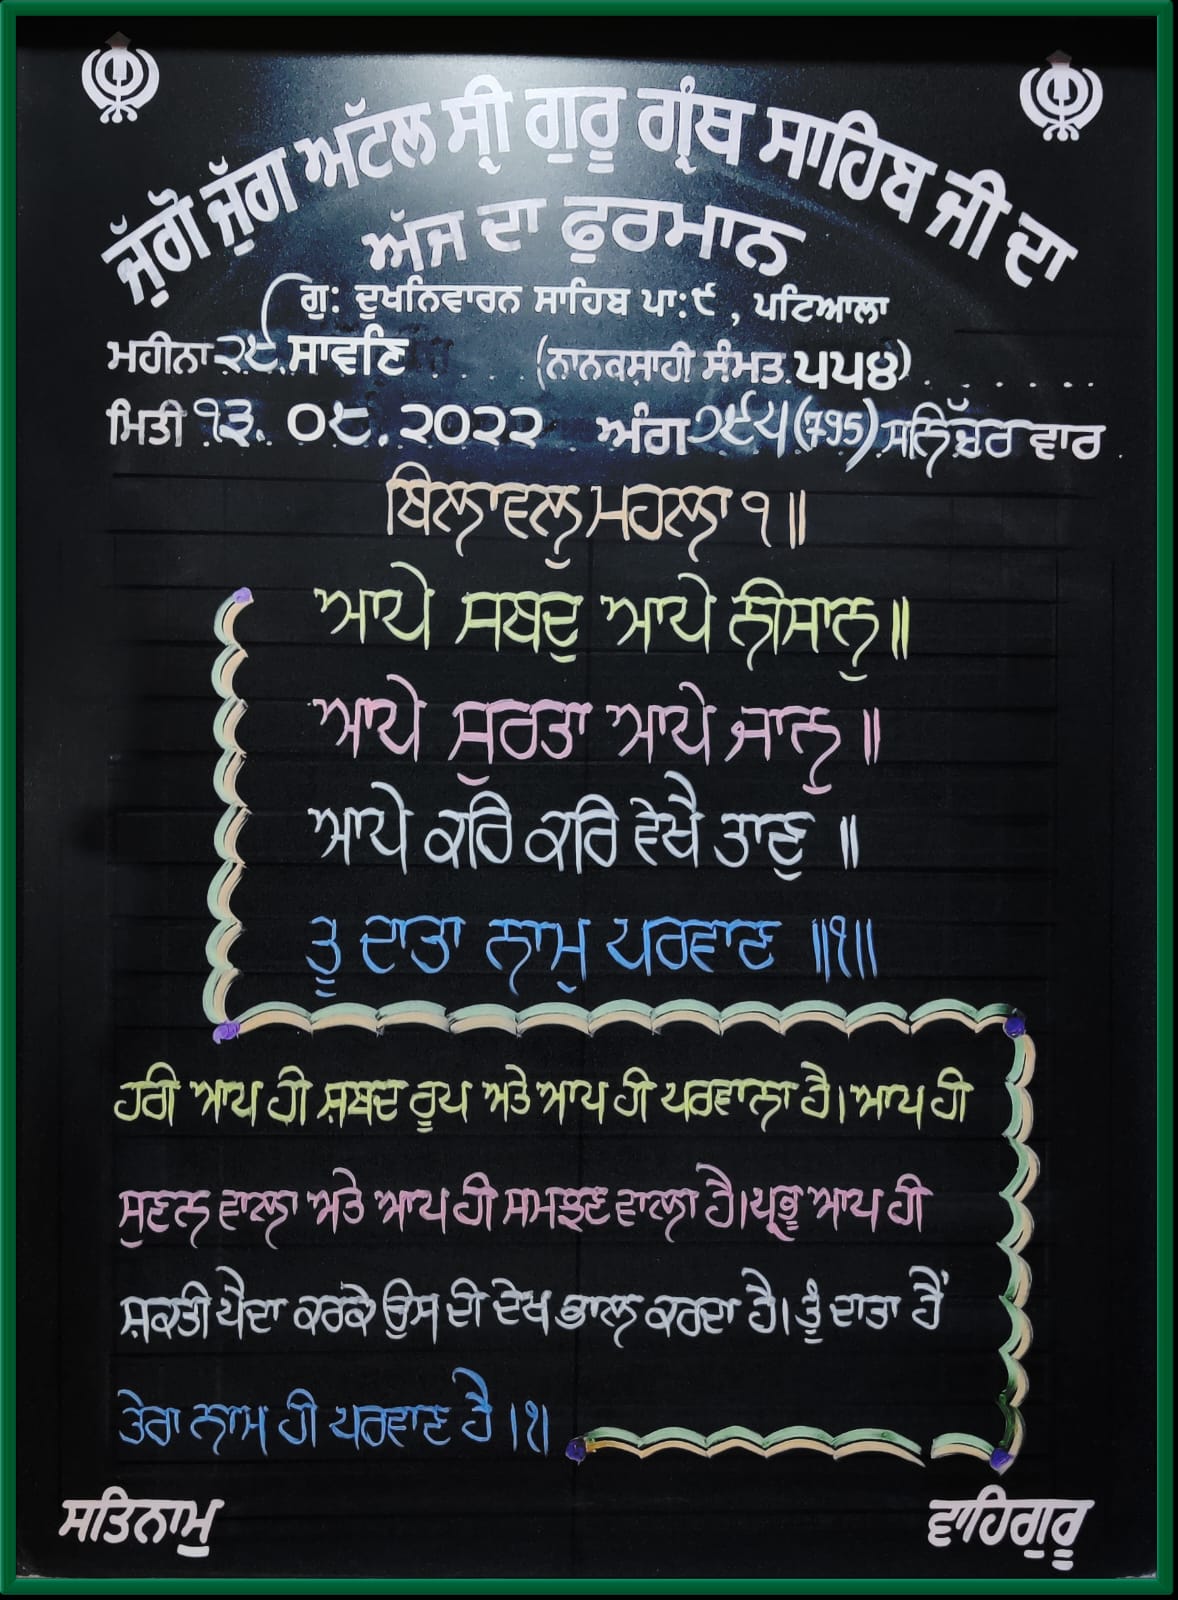 ਜੁੱਗੋ ਜੁੱਗ ਅਟੱਲ ਸ੍ਰੀ ਗੁਰੂ ਗ੍ਰੰਥ ਸਾਹਿਬ ਜੀ ਦਾ
ਅੱਜ ਦਾ ਫੁਰਮਾਨ
ਗੁ: ਦੁਖਨਿਵਾਰਨ ਸਾਹਿਬ ਪਾ:੯, ਪਟਿਆਲਾ
ਮਹੀਨਾ ੨੯ ਸਾਵਣਿ (ਨਾਨਕਸ਼ਾਹੀ ਸੰਮਤ ੫੫੪)
ਮਿਤੀ ੧੩. ੦੮. ੨੦੨੨ ਅੰਗ ੭੯੫ (795) ਸਨਿੱਚਰ ਵਾਰ
ਬਿਲਾਵਲੁ ਮਹਲਾ ੧ ॥
ਆਪੇ ਸਬਦੁ ਆਪੇ ਨੀਸਾਨੁ ॥
ਆਪੇ ਸੁਰਤਾ ਆਪੇ ਜਾਨੁ ॥
ਆਪੇ ਕਰਿ ਕਰਿ ਵੇਖੈ ਤਾਣੁ ॥
ਤੂ ਦਾਤਾ ਨਾਮੁ ਪਰਵਾਣੁ ॥੧॥
ਹਰੀ ਆਪ ਹੀ ਸ਼ਬਦ ਰੂਪ ਅਤੇ ਆਪ ਹੀ ਪਰਵਾਨਾ ਹੈ। ਆਪ ਹੀ
ਸੁਣਨ ਵਾਲਾ ਅਤੇ ਆਪ ਹੀ ਸਮਝਣ ਵਾਲਾ ਹੈ। ਪ੍ਰਭੂ ਆਪ ਹੀ
ਸ਼ਕਤੀ ਪੈਦਾ ਕਰਕੇ ਉਸ ਦੀ ਦੇਖ ਭਾਲ ਕਰਦਾ ਹੈ। ਤੂੰ ਦਾਤਾ ਹੈਂ
ਤੇਰਾ ਨਾਮ ਹੀ ਪਰਵਾਣ ਹੈ ।੧।
ਸਤਿਨਾਮੁ ਵਾਹਿਗੁਰੂ